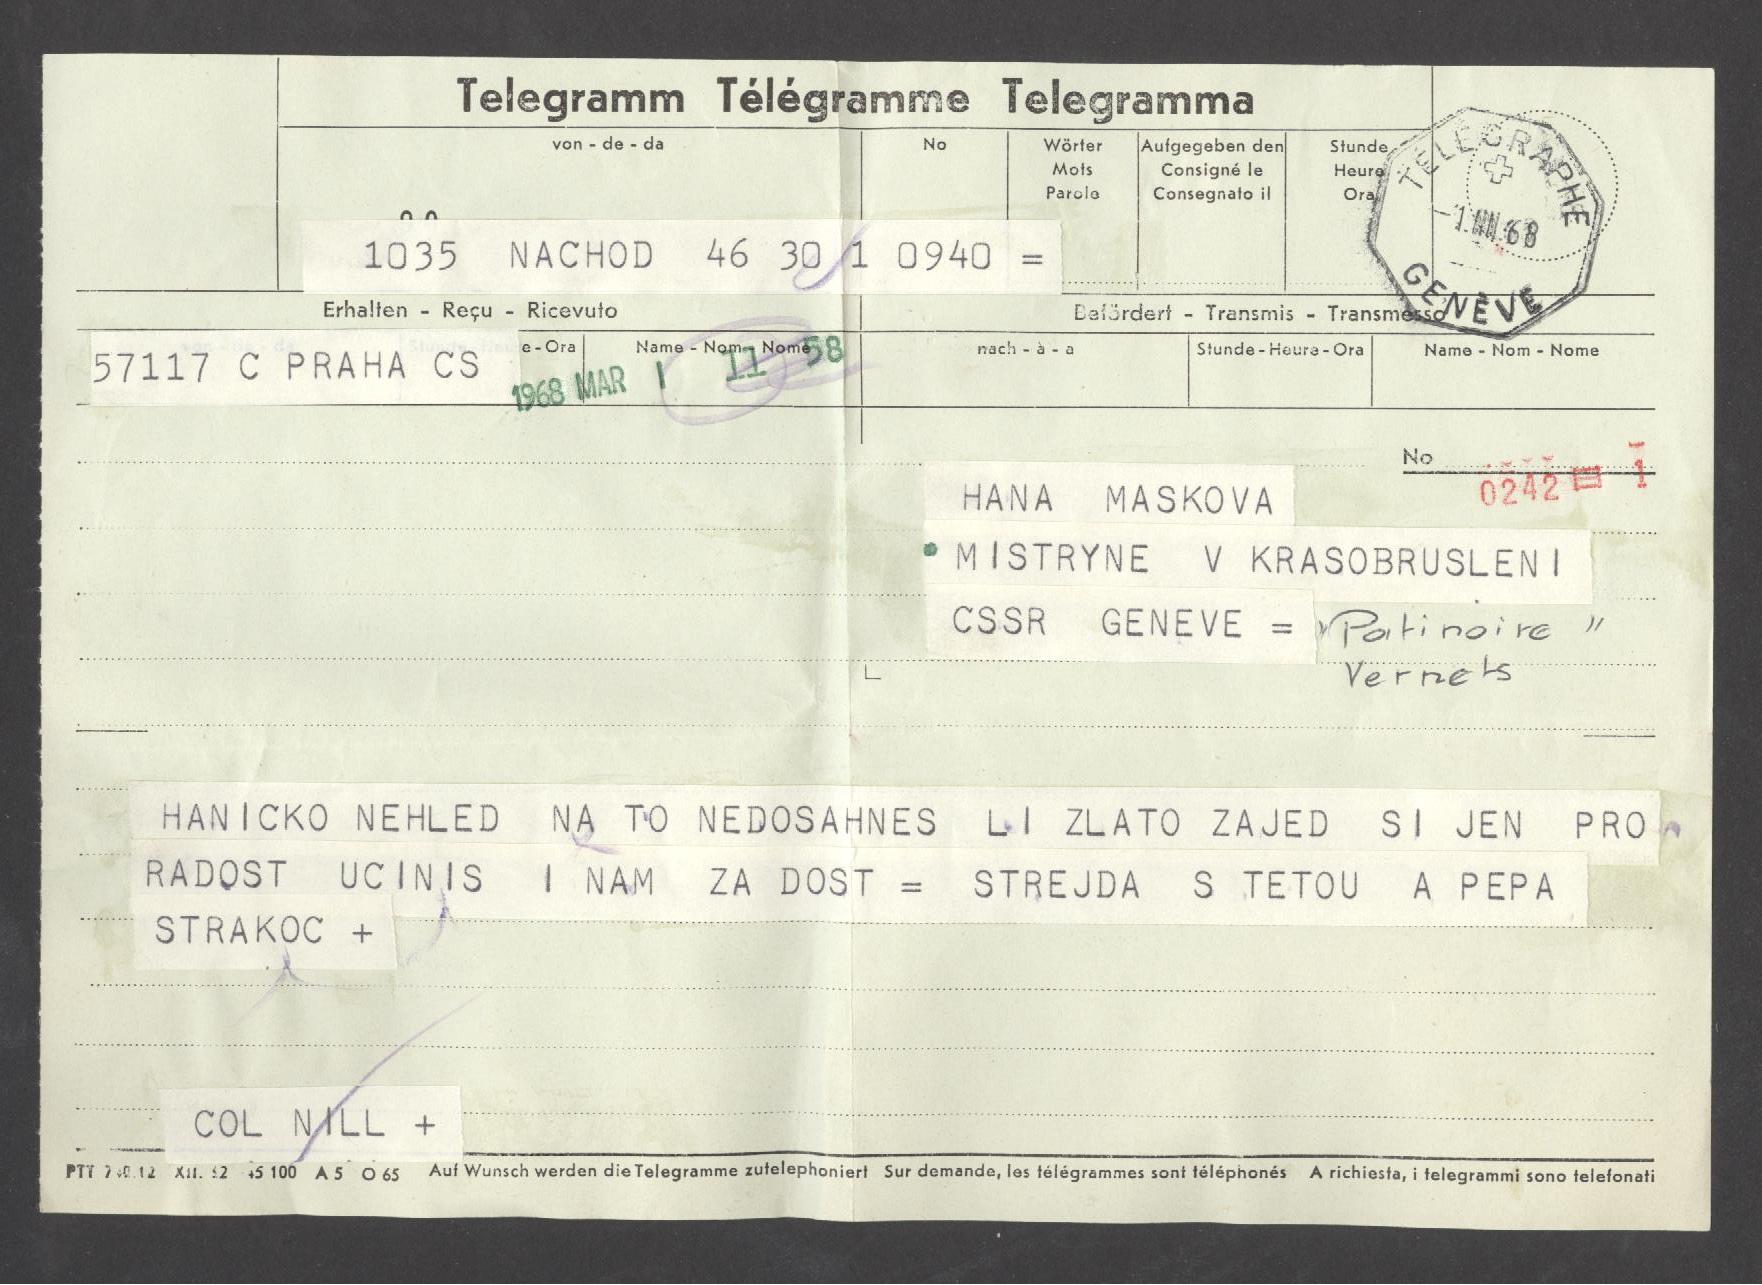 Telegramm Télégramme Telegramma
von - de - da
No
Wörter
Mots
Parole
Aufgegeben den
Consigné le
Consegnato il
Stunde
Heure
Ora
TELEGRAPHE
-1.III.68
GENÈVE
1035 NACHOD 46 30/1 0940 =
Erhalten - Reçu - Ricevuto
Befördert - Transmis - Transmesso
57117 C PRAHA CS
e-Ora
Name - Nom - Nome
1968 MAR 1 11 58
nach - à - a
Stunde-Heure-Ora
Name - Nom - Nome
No
0242 1
HANA MASKOVA
MISTRYNE V KRASOBRUSLENI
CSSR GENEVE = "Patinoire"
Vernets
HANICKO NEHLED NA TO NEDOSAHNES LI ZLATO ZAJED SI JEN PRO
RADOST UCINIS I NAM ZA DOST = STREJDA S TETOU A PEPA
STRAKOC +
COL NILL +
PTT XII. 45 100 A 5 O 65
Auf Wunsch werden die Telegramme zutelephoniert Sur demande, les télégrammes sont téléphonés A richiesta, i telegrammi sono telefonati